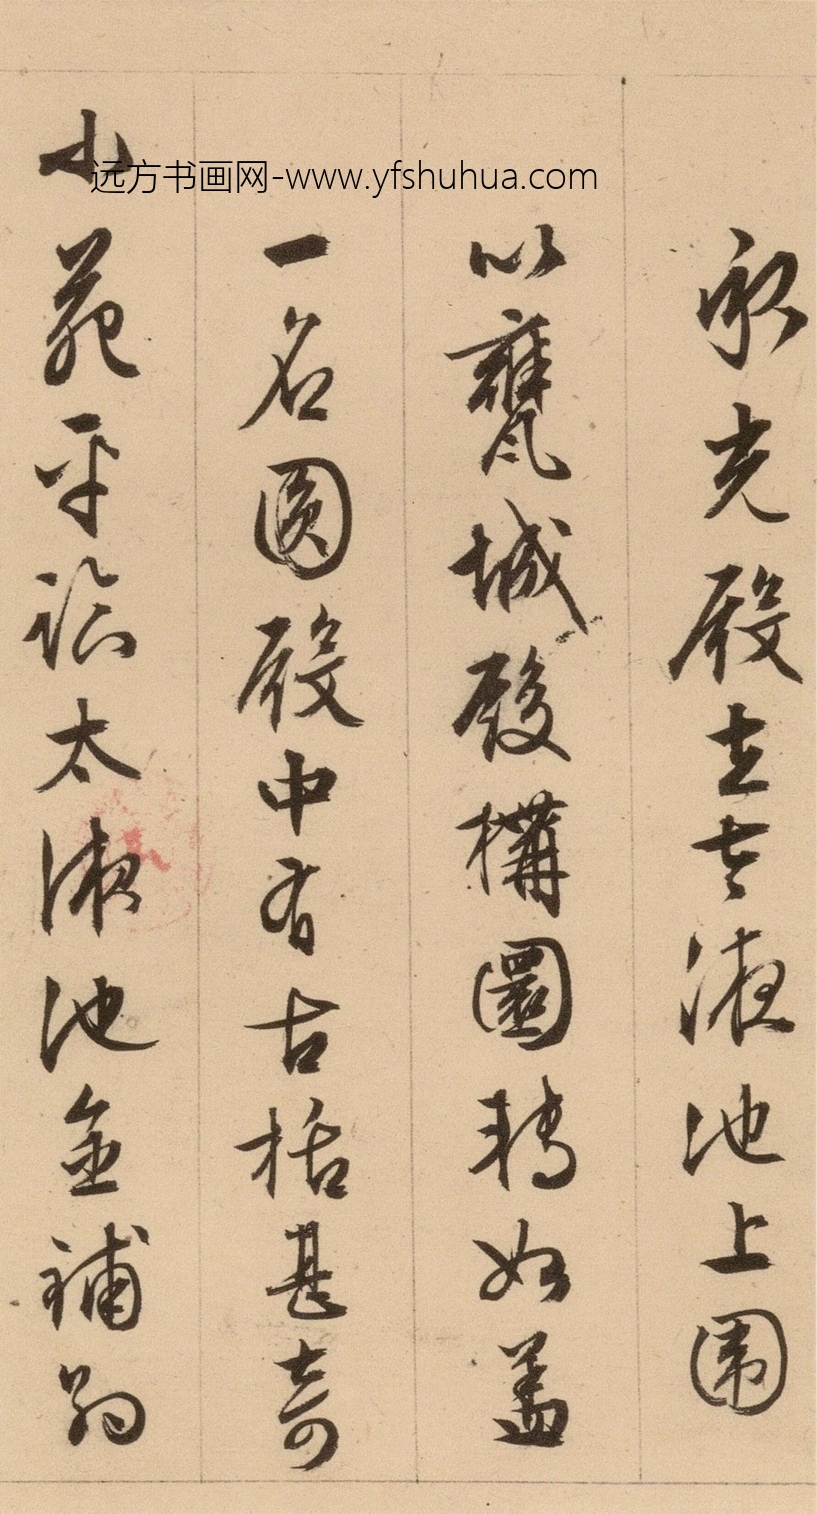 远方书画网-www.yfshuhua.com
承光殿在太液池上圍
以甕城殿構圜轉如蓋
一名圓殿中有古栝甚奇
小苑平臨太液池金鋪約